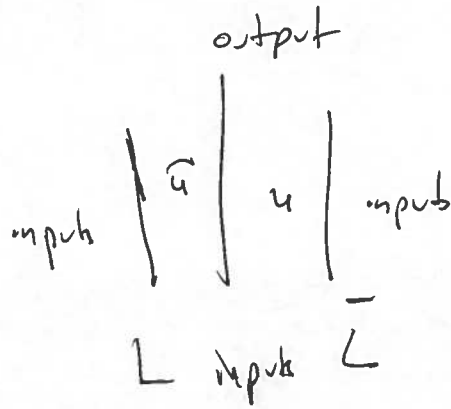 output
inputs ũ u inputs
L inputs L̄